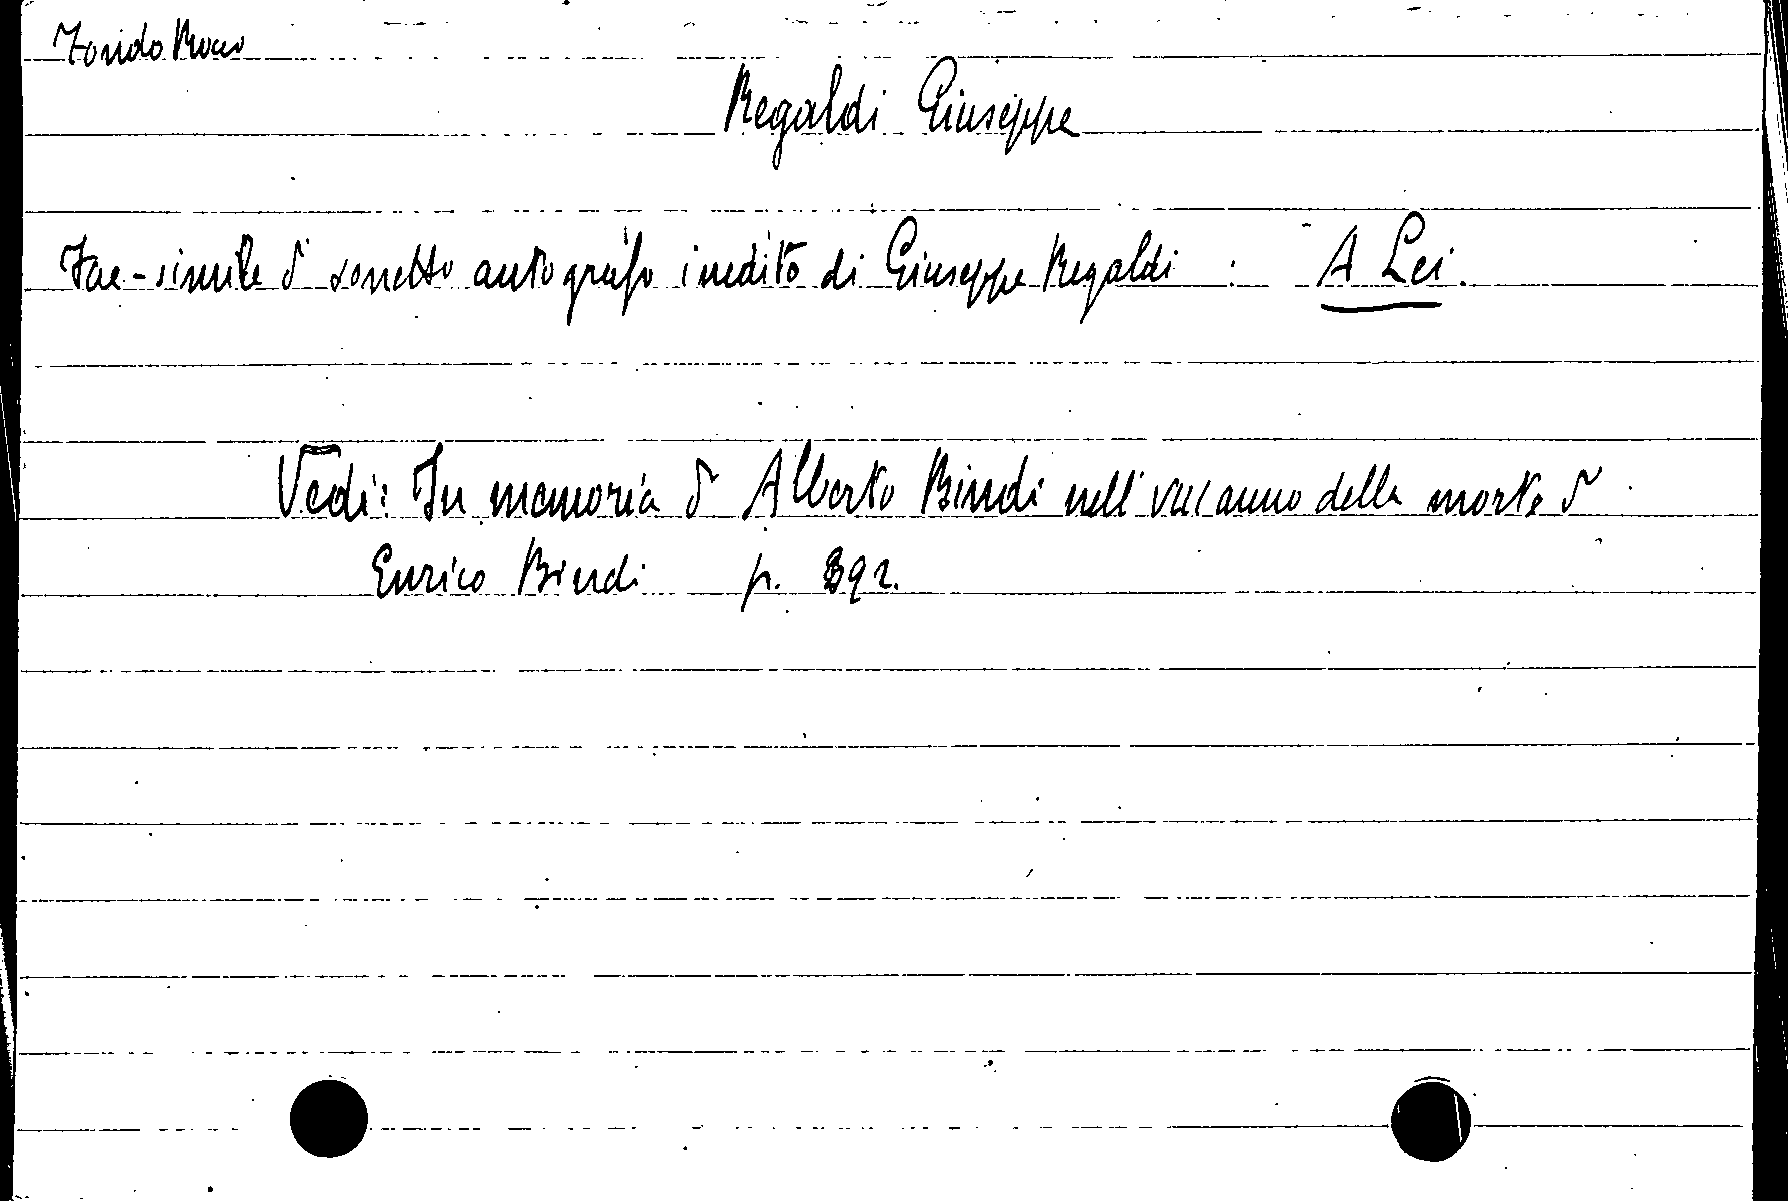 Fondo Rocco
Regaldi Giuseppe
Fac-simile di sonetto autografo inedito di Giuseppe Regaldi : A Lei.
Vedi: In memoria di Alberto Bindi nell' anno della morte di
Enrico Bindi p. 392.